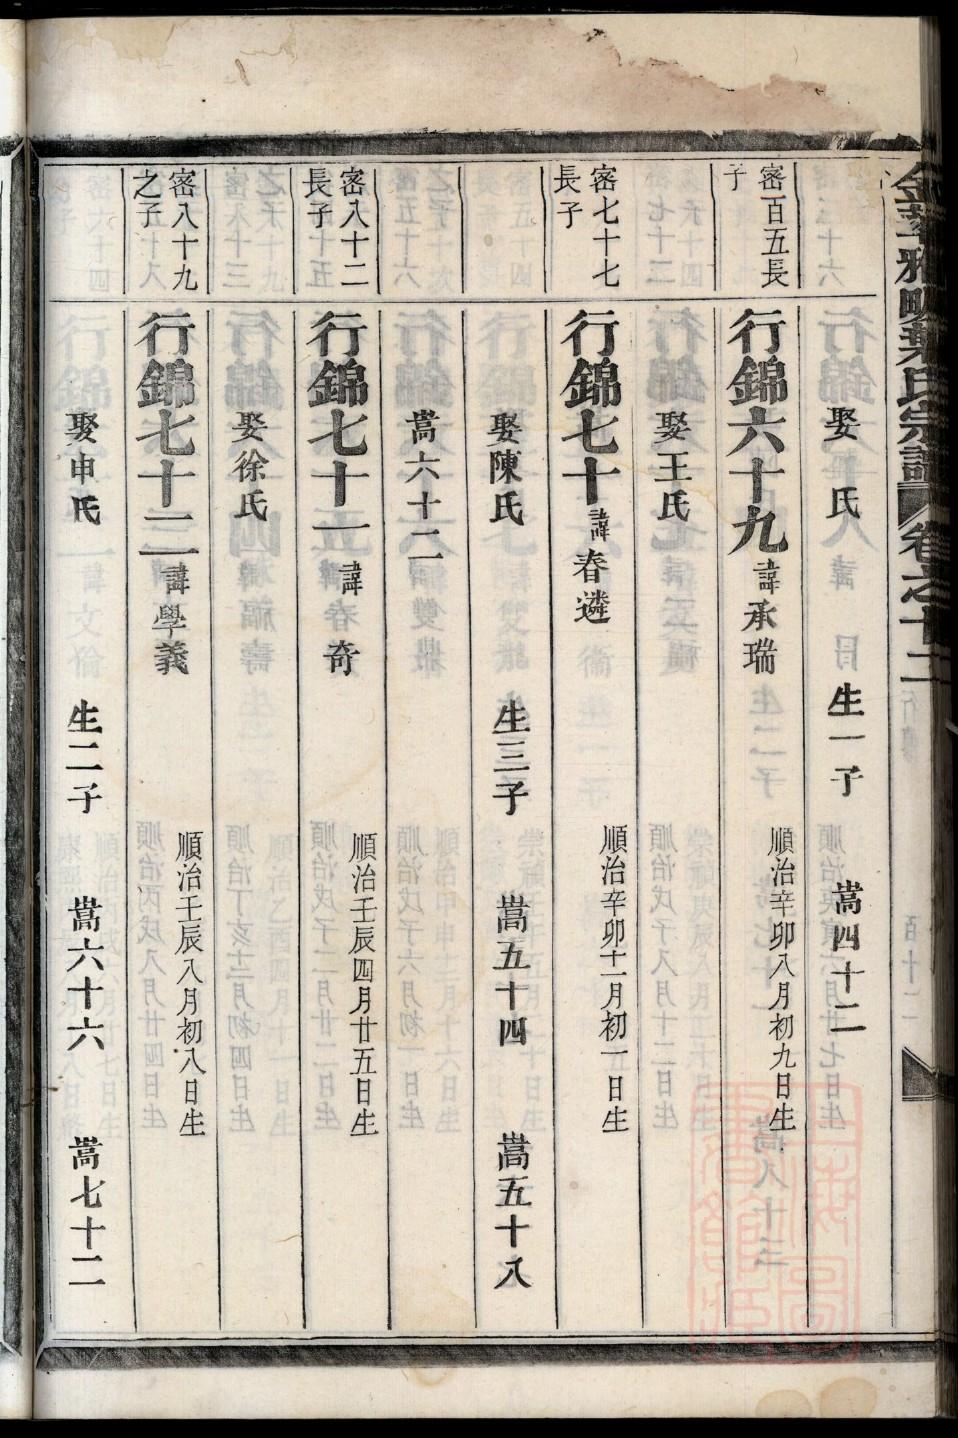 金華雅畈葉氏宗譜 卷之十二
娶 氏 生一子 嵩四十二
密百五長子
行錦六十九 諱承瑞 順治辛卯八月初九日生
娶王氏
密七十七長子
行錦七十 諱春遴 順治辛卯十一月初一日生
娶陳氏 生三子 嵩五十四 嵩五十八
嵩六十二
密八十二長子
行錦七十一 諱春奇 順治壬辰四月廿五日生
娶徐氏
密八十九之子
行錦七十二 諱學義 順治壬辰八月初八日生
娶申氏 生二子 嵩六十六 嵩七十二